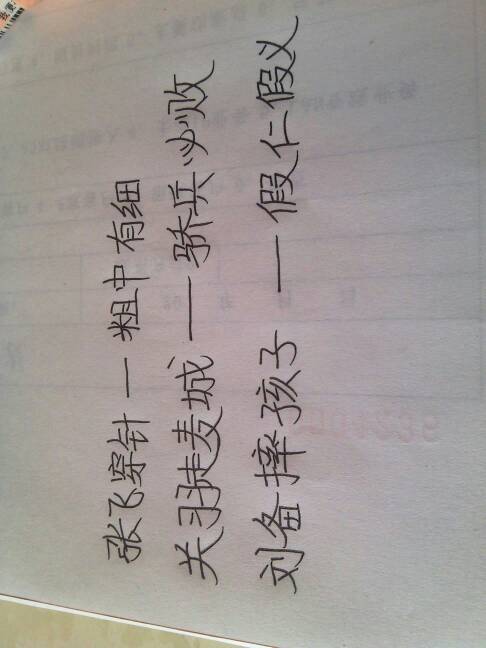 张飞穿针一粗中有细
关羽走麦城——骄兵必败
刘备摔孩子—假仁假义